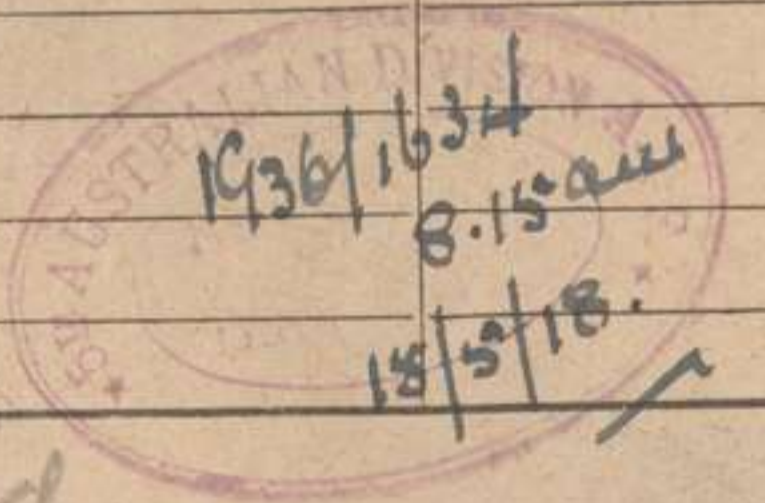 5TH AUSTRALIAN DIVISION
1936/1634
8.15 am
18/5/18.